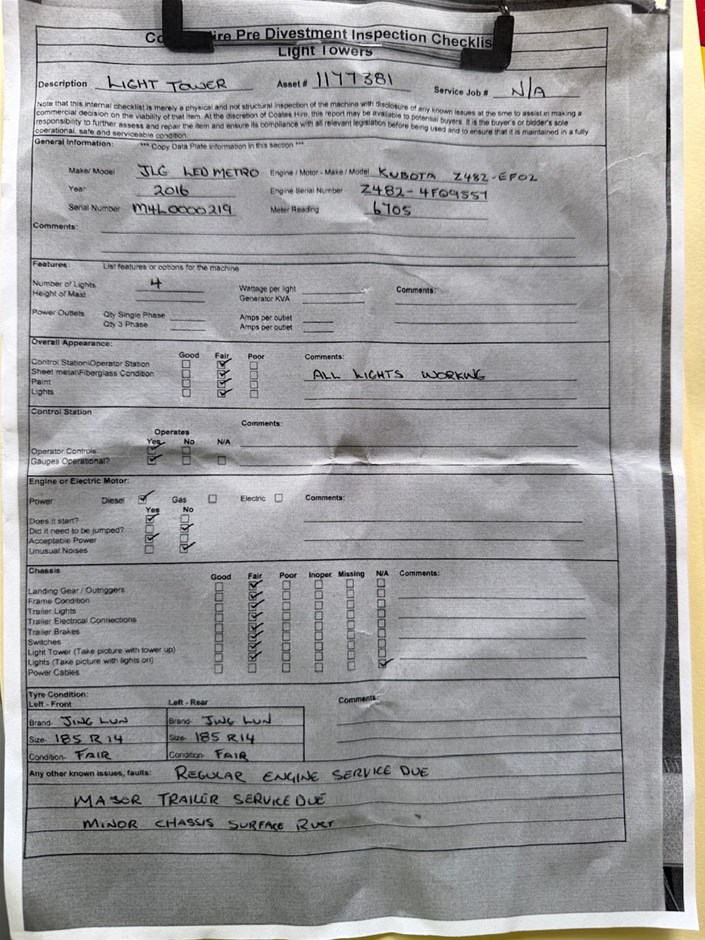 Co ire Pre Divestment Inspection Checklis
Light Towers
Description LIGHT TOWER Asset # 1177381 Service Job # N/A
Note that this internal checklist is merely a physical and not structural inspection of the machine with disclosure of any known issues at the time to assist in making a
commercial decision on the viability of that item. At the discretion of Coates Hire, this report may be available to potential buyers. It is the buyer's or bidder's sole
responsibility to further assess and repair the item and ensure its compliance with all relevant legislation before being used and to ensure that it is maintained in a fully
operational, safe and serviceable condition.
General Information: *** Copy Data Plate Information in this section ***
Make/Model JLG LED METRO Engine / Motor - Make / Model KUBOTA Z482-EF02
Year 2016 Engine Serial Number Z482-4FQ9557
Serial Number M4L0000219 Meter Reading 6705
Comments:
Features: List features or options for the machine
Number of Lights 4 Wattage per light Comments:
Height of Mast Generator KVA
Power Outlets Qty Single Phase Amps per outlet
Qty 3 Phase Amps per outlet
Overall Appearance:
Good Fair Poor Comments:
Control Station\Operator Station
Sheet metal\Fiberglass Condition ALL LIGHTS WORKING
Paint
Lights
Control Station
Operates Comments:
Yes No N/A
Operator Controls
Gauges Operational?
Engine or Electric Motor:
Power Diesel Gas Electric Comments:
Yes No
Does it start?
Did it need to be jumped?
Acceptable Power
Unusual Noises
Chassis
Good Fair Poor Inoper Missing N/A Comments:
Landing Gear / Outriggers
Frame Condition
Trailer Lights
Trailer Electrical Connections
Trailer Brakes
Switches
Light Tower (Take picture with tower up)
Lights (Take picture with lights on)
Power Cables
Tyre Condition:
Left - Front Left - Rear Comments:
Brand- JING LUN Brand- JING LUN
Size- 185 R 14 Size- 185 R14
Condition- FAIR Condition- FAIR
Any other known issues, faults: REGULAR ENGINE SERVICE DUE
MAJOR TRAILER SERVICE DUE
MINOR CHASSIS SURFACE RUST